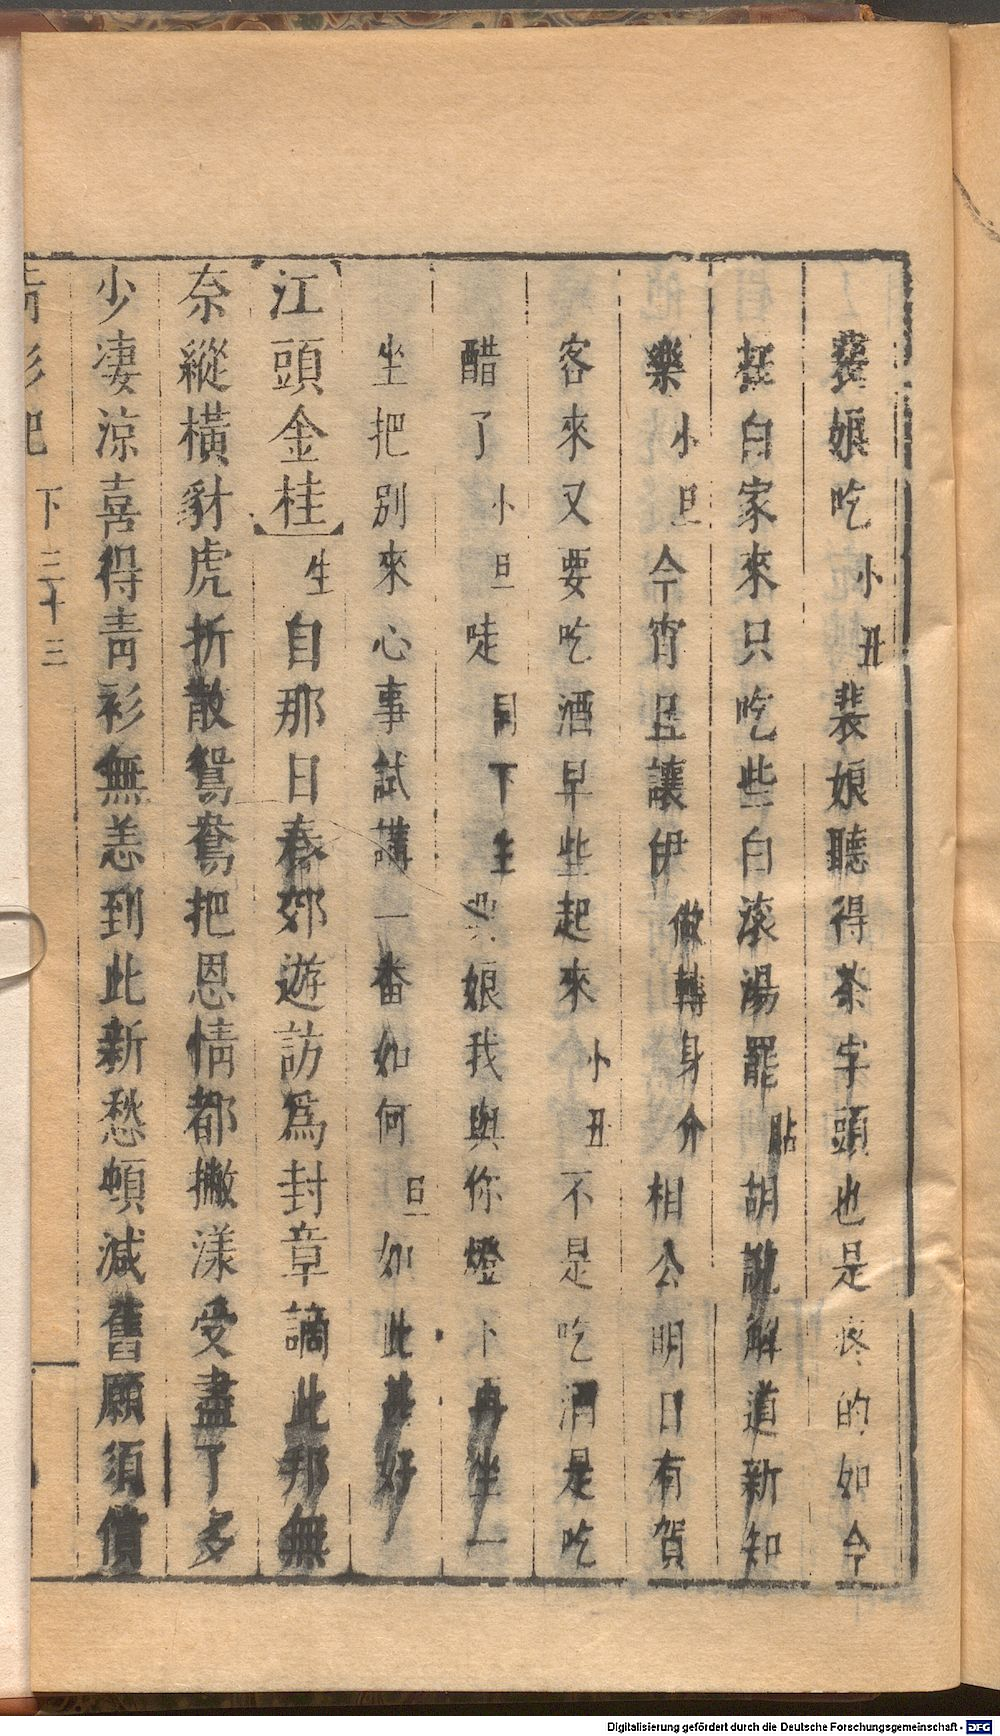 裴娘吃小丑裴娘聽得茶字頭也是疼的如今
在自家來只吃些白滾湯罷貼胡說解道新知
樂小旦今宵且讓伊做轉身介相公明日有賀
客來又要吃酒早些起來小丑不是吃酒是吃
醋了小旦唗同下生 娘我與你燈下再坐一
坐把別來心事試講一番如何旦如此甚好
江頭金桂生自那日春郊遊訪爲封章謫此邦無
奈縱橫豺虎折散鴛鴦把恩情都撇漾受盡了多
少凄涼喜得青衫無恙到此新愁頓減舊願須償
青衫記 下 三十三
Digitalisierung gefördert durch die Deutsche Forschungsgemeinschaft - DFG